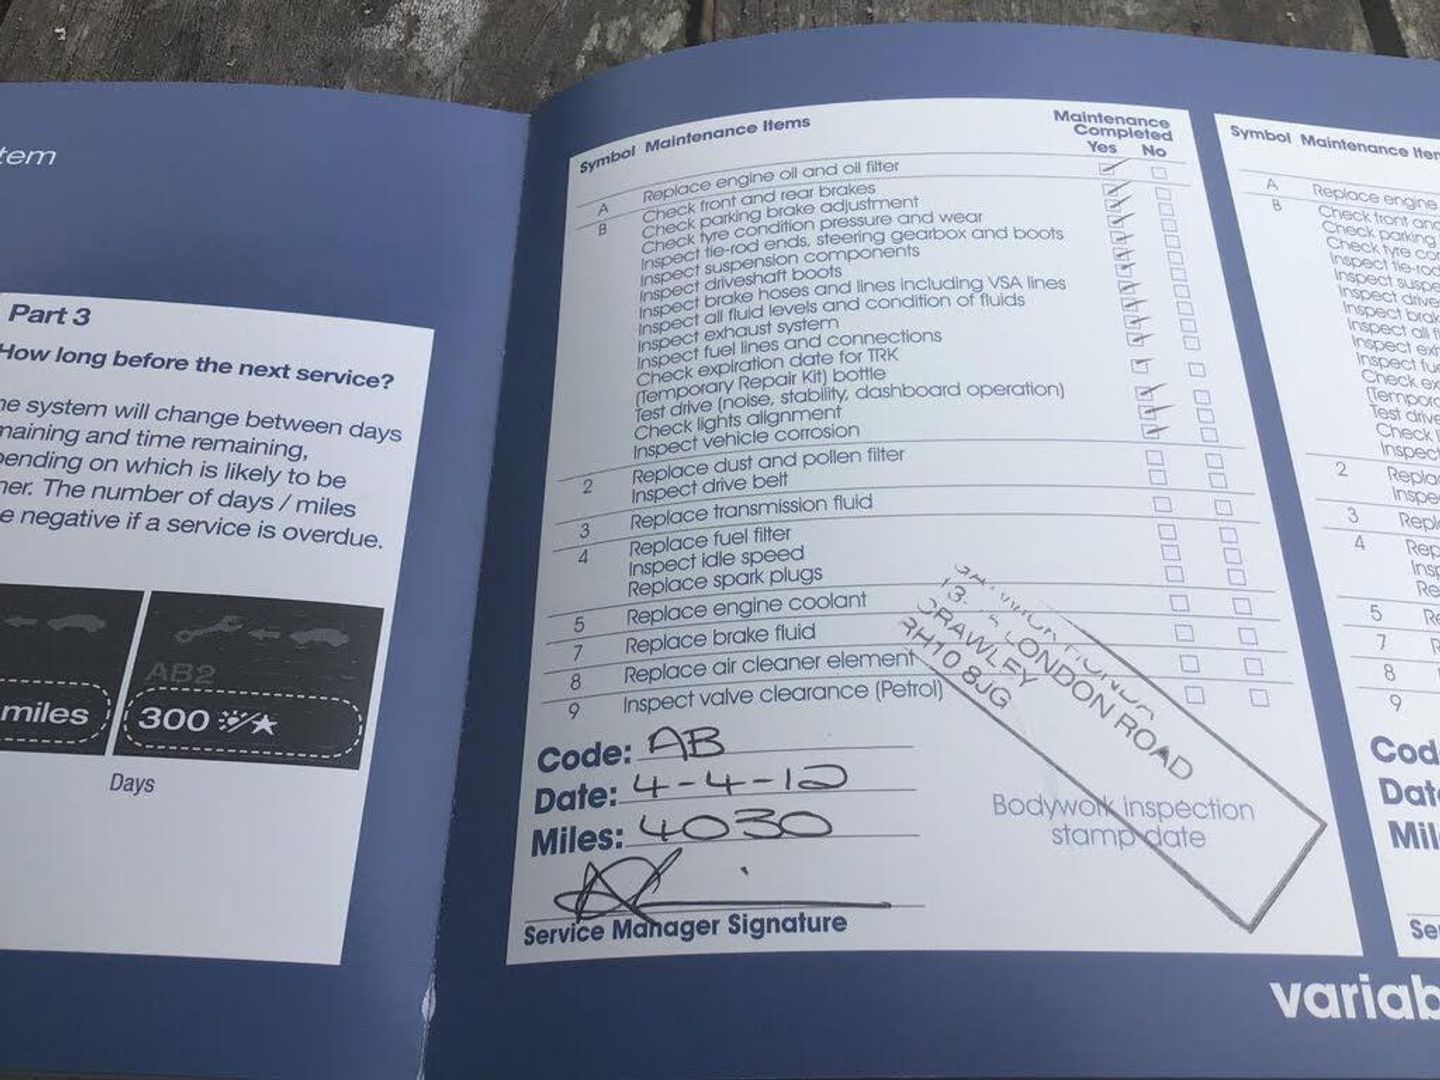 tem
Part 3
How long before the next service?
he system will change between days
maining and time remaining,
pending on which is likely to be
ner. The number of days / miles
e negative if a service is overdue.
miles
AB2
300
Days
Symbol Maintenance Items
Maintenance
Completed
Yes No
A Replace engine oil and oil filter
B Check front and rear brakes
Check parking brake adjustment
Check tyre condition pressure and wear
Inspect tie-rod ends, steering gearbox and boots
Inspect suspension components
Inspect driveshaft boots
Inspect brake hoses and lines including VSA lines
Inspect all fluid levels and condition of fluids
Inspect exhaust system
Inspect fuel lines and connections
Check expiration date for TRK
(Temporary Repair Kit) bottle
Test drive (noise, stability, dashboard operation)
Check lights alignment
Inspect vehicle corrosion
2 Replace dust and pollen filter
Inspect drive belt
3 Replace transmission fluid
4 Replace fuel filter
Inspect idle speed
Replace spark plugs
5 Replace engine coolant
7 Replace brake fluid
8 Replace air cleaner element
9 Inspect valve clearance (Petrol)
LONDON ROAD
CRAWLEY
RH10 8JG
Code: AB
Date: 4-4-12
Miles: 4030
Bodywork inspection
stamp date
Service Manager Signature
Symbol Maintenance Item
A Replace engine
B Check front and
Check parking
Check tyre co
Inspect tie-rod
Inspect suspe
Inspect drive
Inspect brak
Inspect all fl
Inspect exh
Inspect fue
Check ex
(Tempor
Test drive
Check l
Inspect
2 Replac
Inspe
3 Repl
4 Rep
Insp
Re
5 Re
7 R
8
9
Cod
Dat
Mil
Se
variab